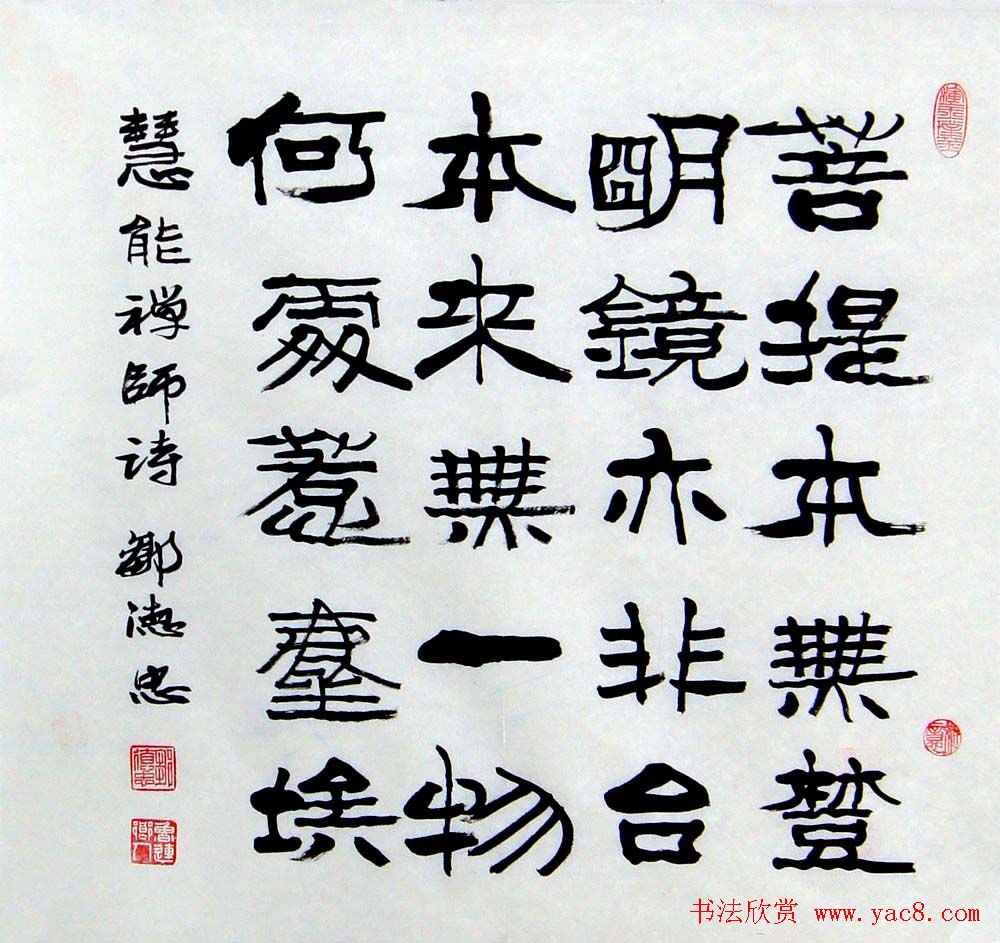 菩提本無樹
明鏡亦非台
本来無一物
何處惹塵埃
慧能禅師诗 鄒德忠
魯連鄉人
书法欣赏 www.yac8.com